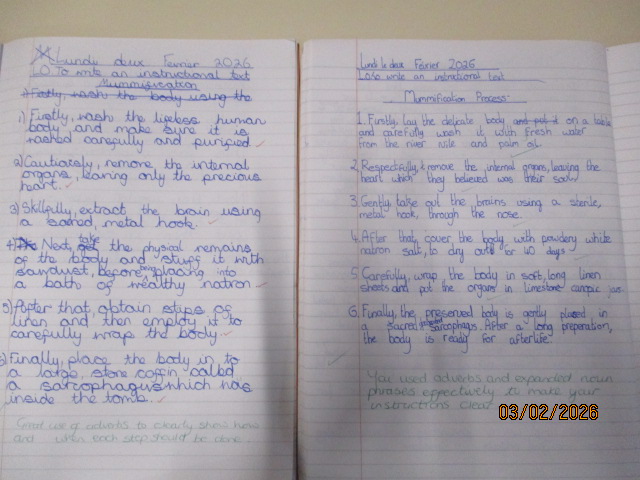 Lundu deux Fevrier 2026
LO To write an instructional text
Mummification
1) Firstly, wash the body using the
1) Firstly, wash the lifeless human
body, and make sure it is
washed carefully and purified.
2) Cautiously, remove the internal
organs, leaving only the precious
heart.
3) Skilfully, extract the brain using
a sacred, metal hook.
4) Next, take the physical remains
of the body and stuff it with
sawdust, before placing into
a bath of wealthy natron
5) After that, obtain strips of
linen and then employ it to
carefully wrap the body
Finally, place the body in to
a large, stone coffin called
a sarcophagus which has
inside the tomb.
Great use of adverbs to clearly show how
and when each step should be done.
Lundi le deux Fevrier 2026
LO: to write an instructional text
Mummification Process:
1. Firstly, lay the delicate body and put it on a table
and carefully wash it with fresh water
from the river nile and palm oil.
2. Respectfully, remove the internal organs, leaving the
heart which they believed was their soul.
3. Gently take out the brains using a sterile,
metal hook, through the nose.
4. After that, cover the body with powdery white
natron salt, to dry out for 40 days
5. Carefully, wrap the body in soft, long linen
sheets and put the organs in limestone canopic jars.
6. Finally, the preserved body is gently placed in
a sacred sarcophagus. After a long preparation,
the body is ready for afterlife
You used adverbs and expanded noun
phrases effectively to make your
instructions clear
03/02/2026